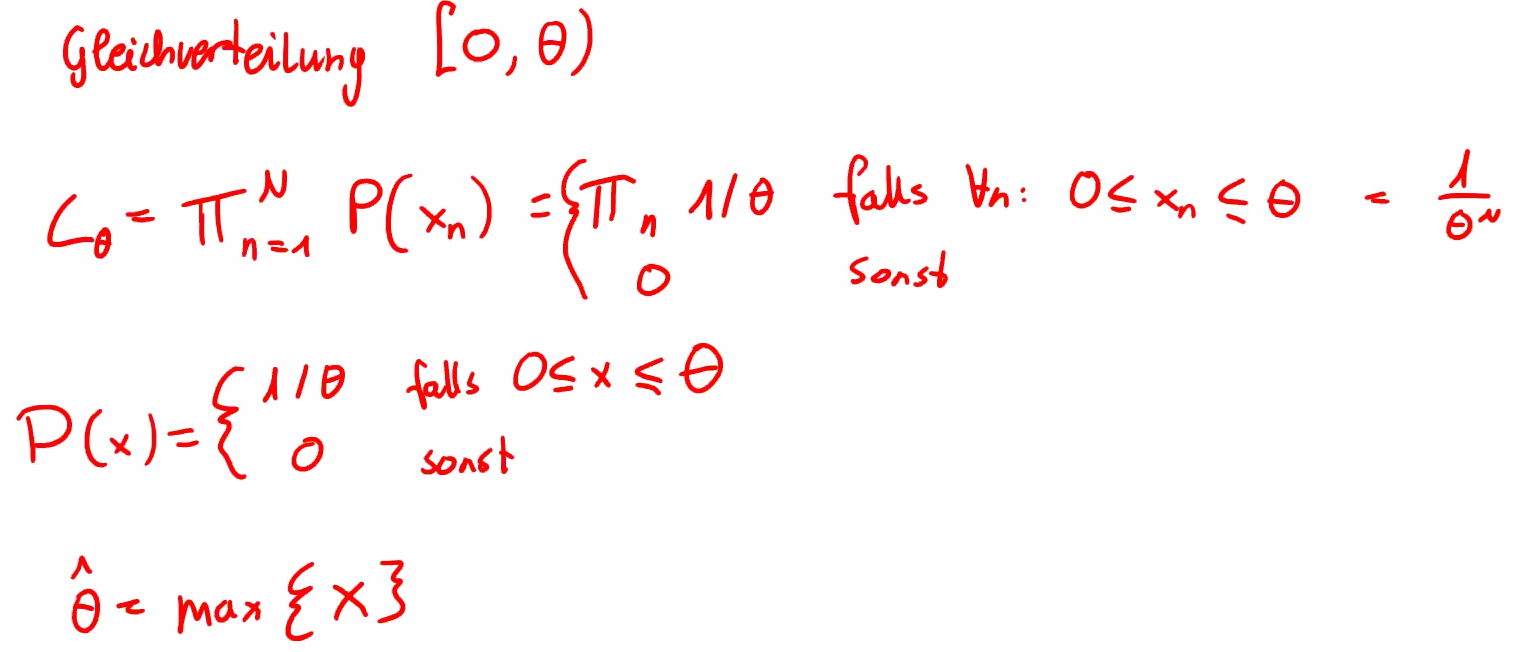 Gleichverteilung [0, θ)
L_θ = ∏_{n=1}^N P(x_n) = { ∏_n 1/θ falls ∀n: 0 ≤ x_n ≤ θ = 1/θ^N
0 sonst
P(x) = { 1/θ falls 0 ≤ x ≤ θ
0 sonst
θ̂ = max {x}